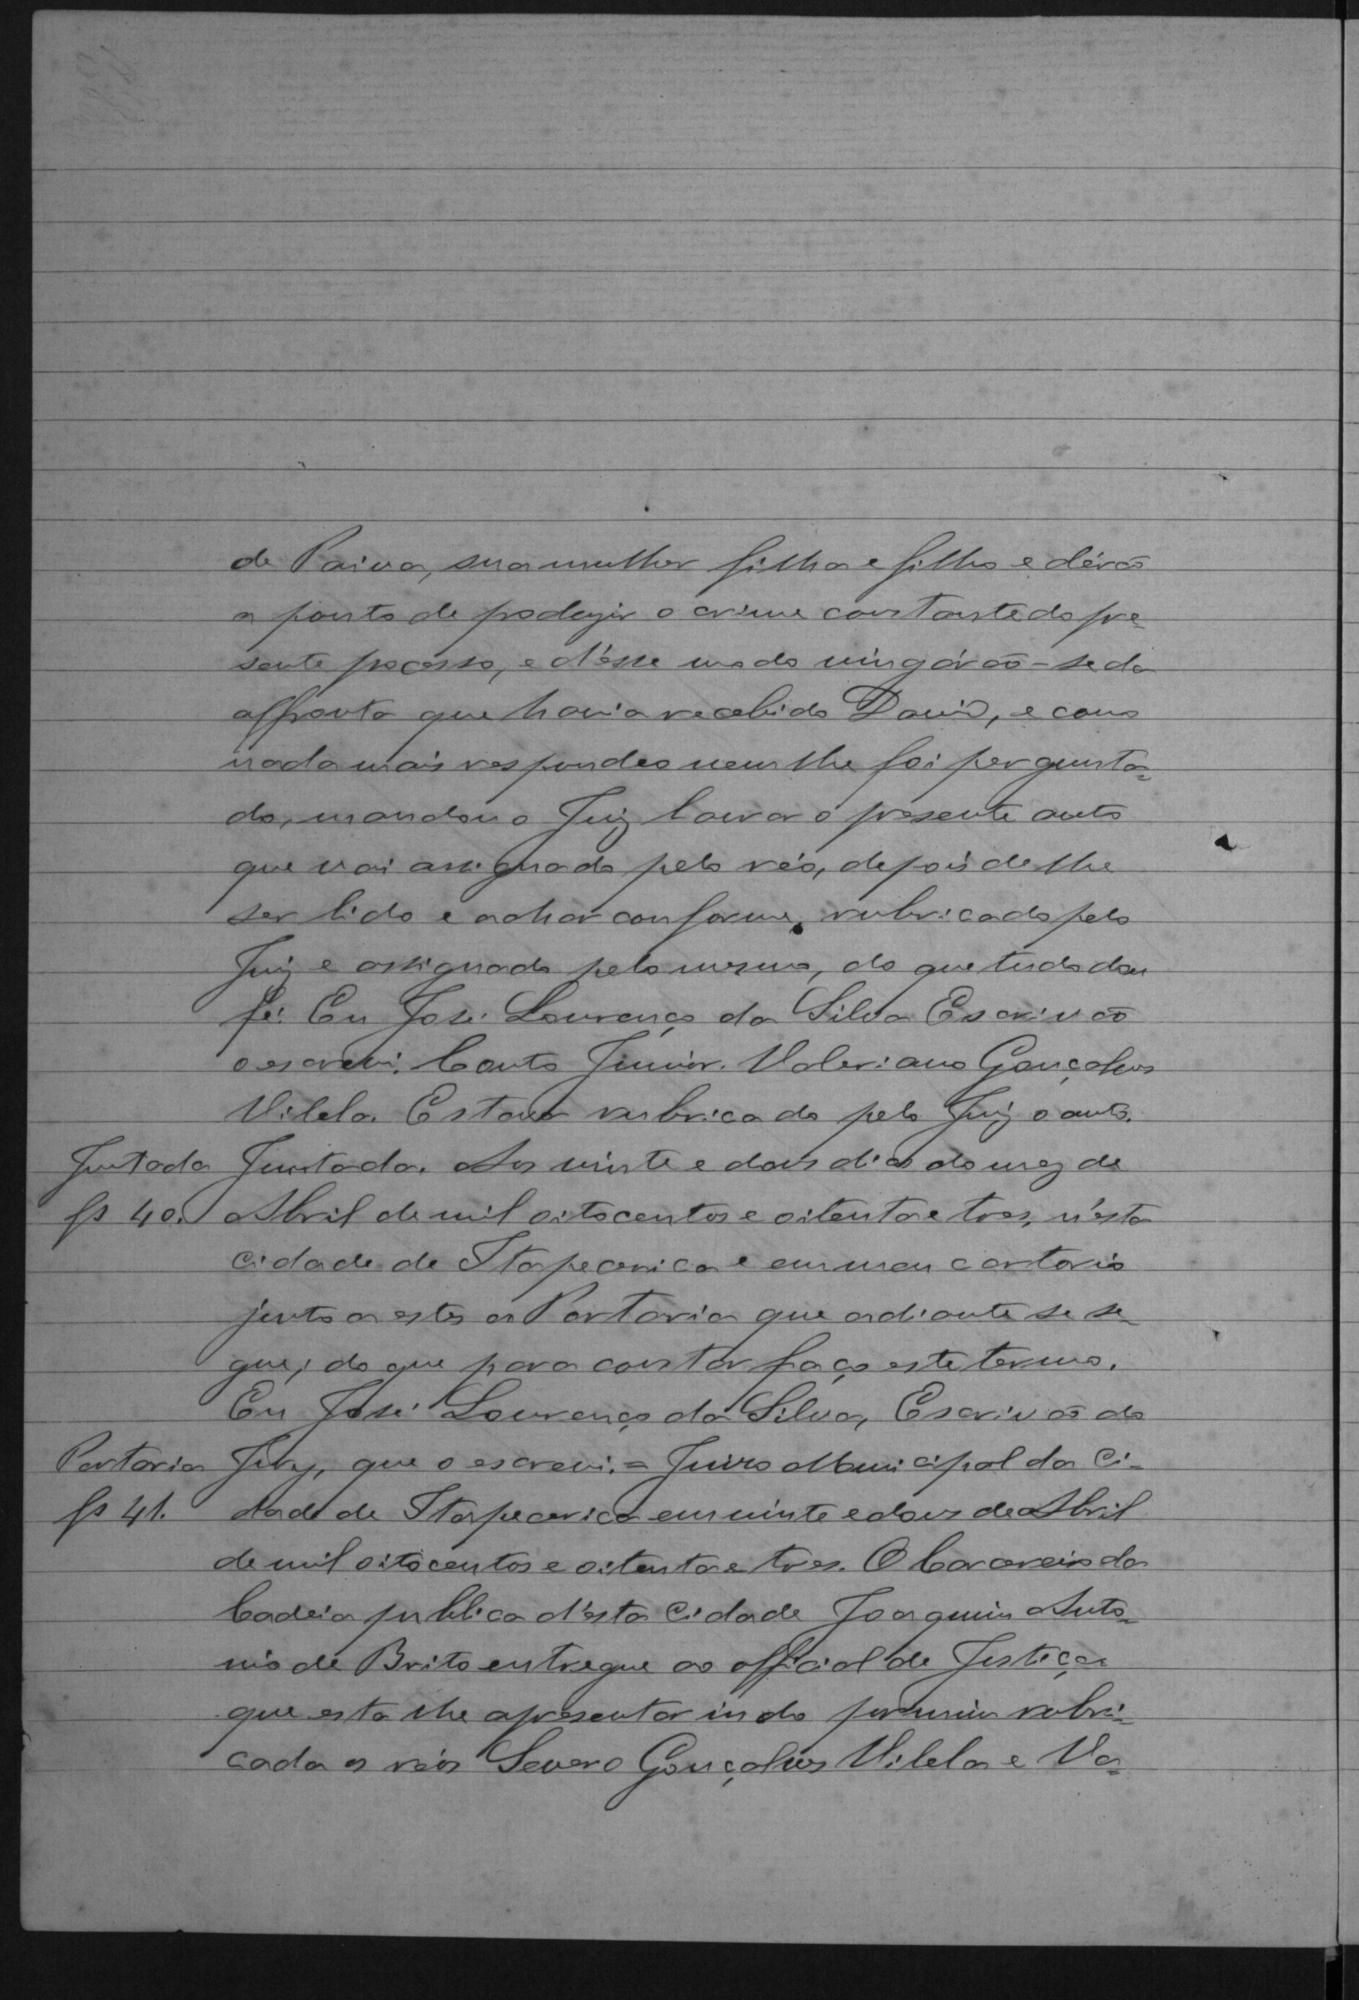 de Paiva, sua mulher filha e filho e dérão
a ponto de produzir o crime constante do pre-
sente processo, e d'ésse modo vingárão-se da
affronta que havia recebido David, e como
nada mais respondeo nem lhe foi pergunta-
do, mandou o Juiz lavrar o presente auto
que vai assignado pelo réo, depois de lhe
ser lido e achar conforme, rubricado pelo
Juiz e assignado pelo mesmo, do que tudo dou
fé. Eu José Lourenço da Silva Escrivão
o escrevi. Couto Junior. Valeriano Gonçalves
Vilela. Estava rubricado pelo Juiz o auto.
Juntada Juntada. Aos vinte e dois dias do mez de
fs 40. Abril de mil oitocentos e oitenta e tres, n'esta
cidade de Itapecerica e em meu cartorio
junto a estes a Portaria que adiante se se-
gue; do que para constar faço este termo.
Eu José Lourenço da Silva, Escrivão do
Portaria Jury, que o escrevi. = Juizo Municipal da Ci-
fs 41. dade de Itapecerica em vinte e dois de Abril
de mil oitocentos e oitenta e tres. O Carcereiro da
Cadeia publica d'esta Cidade Joaquim Anto-
nio de Brito entregue ao official de Justiça
que esta lhe apresentar indo por mim rubri-
cada os réos Severo Gonçalves Vilela e Va-